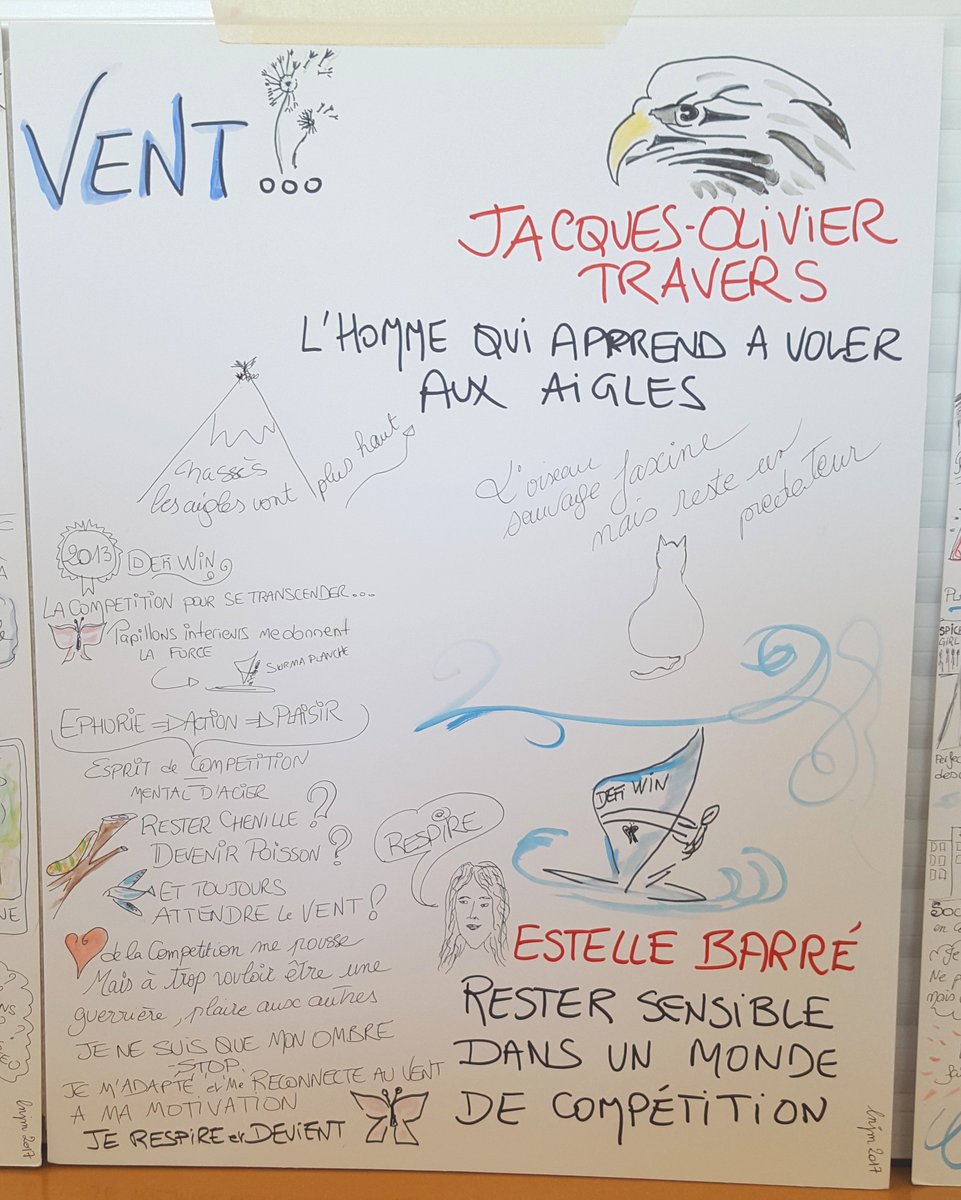 VENT...
JACQUES-OLIVIER
TRAVERS
L'HOMME QUI APPREND A VOLER
AUX AIGLES
chassés
les aigles vont
plus haut
L'oiseau
sauvage fascine
mais reste un
predateur
2013
DEFI WIN
LA COMPETITION POUR SE TRANSCENDER...
Papillons intérieurs me donnent
LA FORCE
SUR MA PLANCHE
EPHORIE => ACTION => PLAISIR
ESPRIT de COMPETITION
MENTAL D'ACIER
RESTER CHENILLE ?
DEVENIR POISSON ?
ET TOUJOURS
ATTENDRE Le VENT !
de la Competition me pousse
Mais à trop vouloir être une
guerrière, plaire aux autres
JE NE SUIS QUE MON OMBRE
STOP.
JE M'ADAPTE et Me RECONNECTE AU VENT
A MA MOTIVATION
JE RESPIRE et DEVIENT
RESPIRE
DEFI WIN
ESTELLE BARRÉ
RESTER SENSIBLE
DANS UN MONDE
DE COMPÉTITION
2017